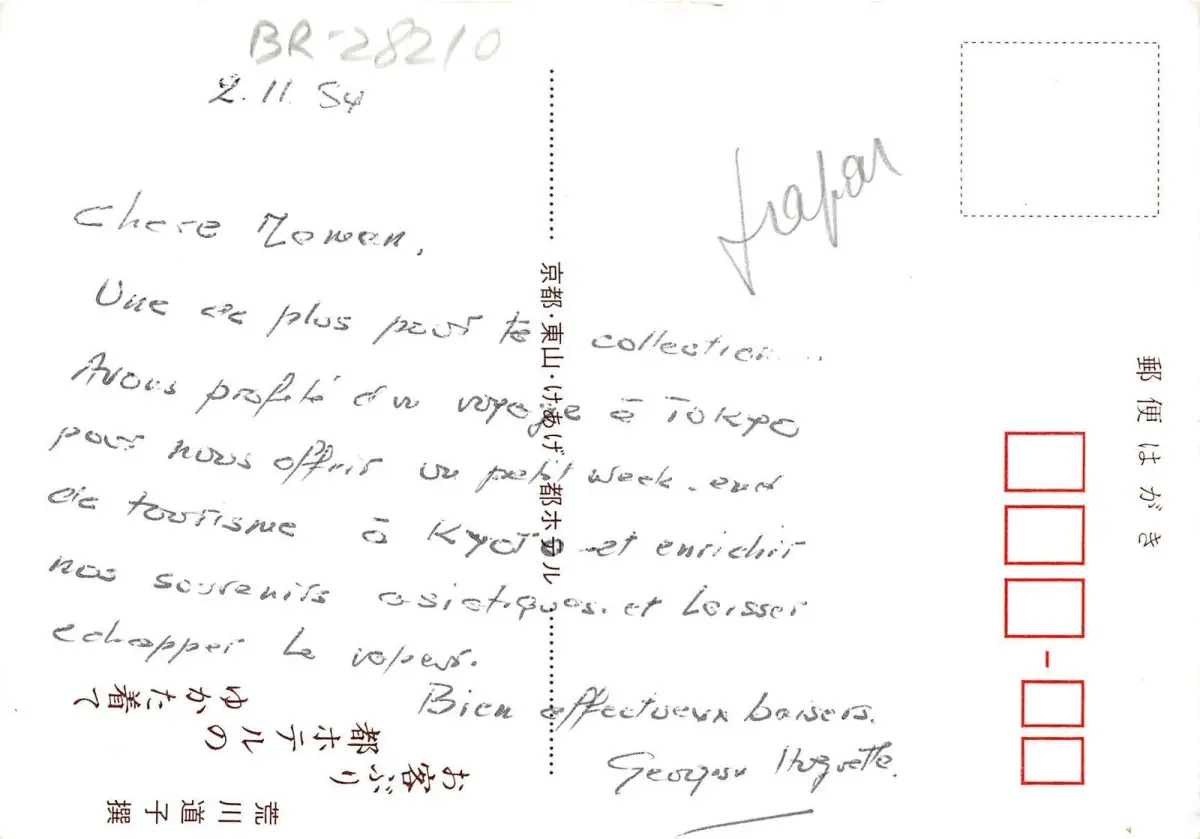 BR-28210
2.11.
Chere Maman,
Une de plus pour ta collection...
Avons profité d'un voyage à TOKYO
pour nous offrir un petit week-end
de tourisme à KYOTO et enrichir
nos souvenirs asiatiques. et laisser
echapper la vapeur.
Bien affectueux baisers.
Huguette.
京都・東山・けあげ 都ホテル
郵便はがき
ゆかた着て
都ホテルの
お客ぶり
荒川道子撰